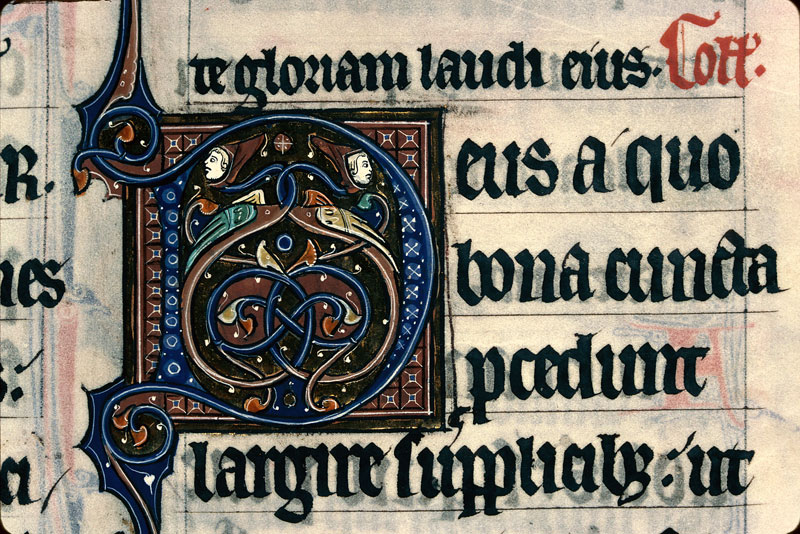 te gloriam laudi eius. Coll'.
R.
Deus a quo
nes
bona cuncta
pcedunt
largire supplicib; ut